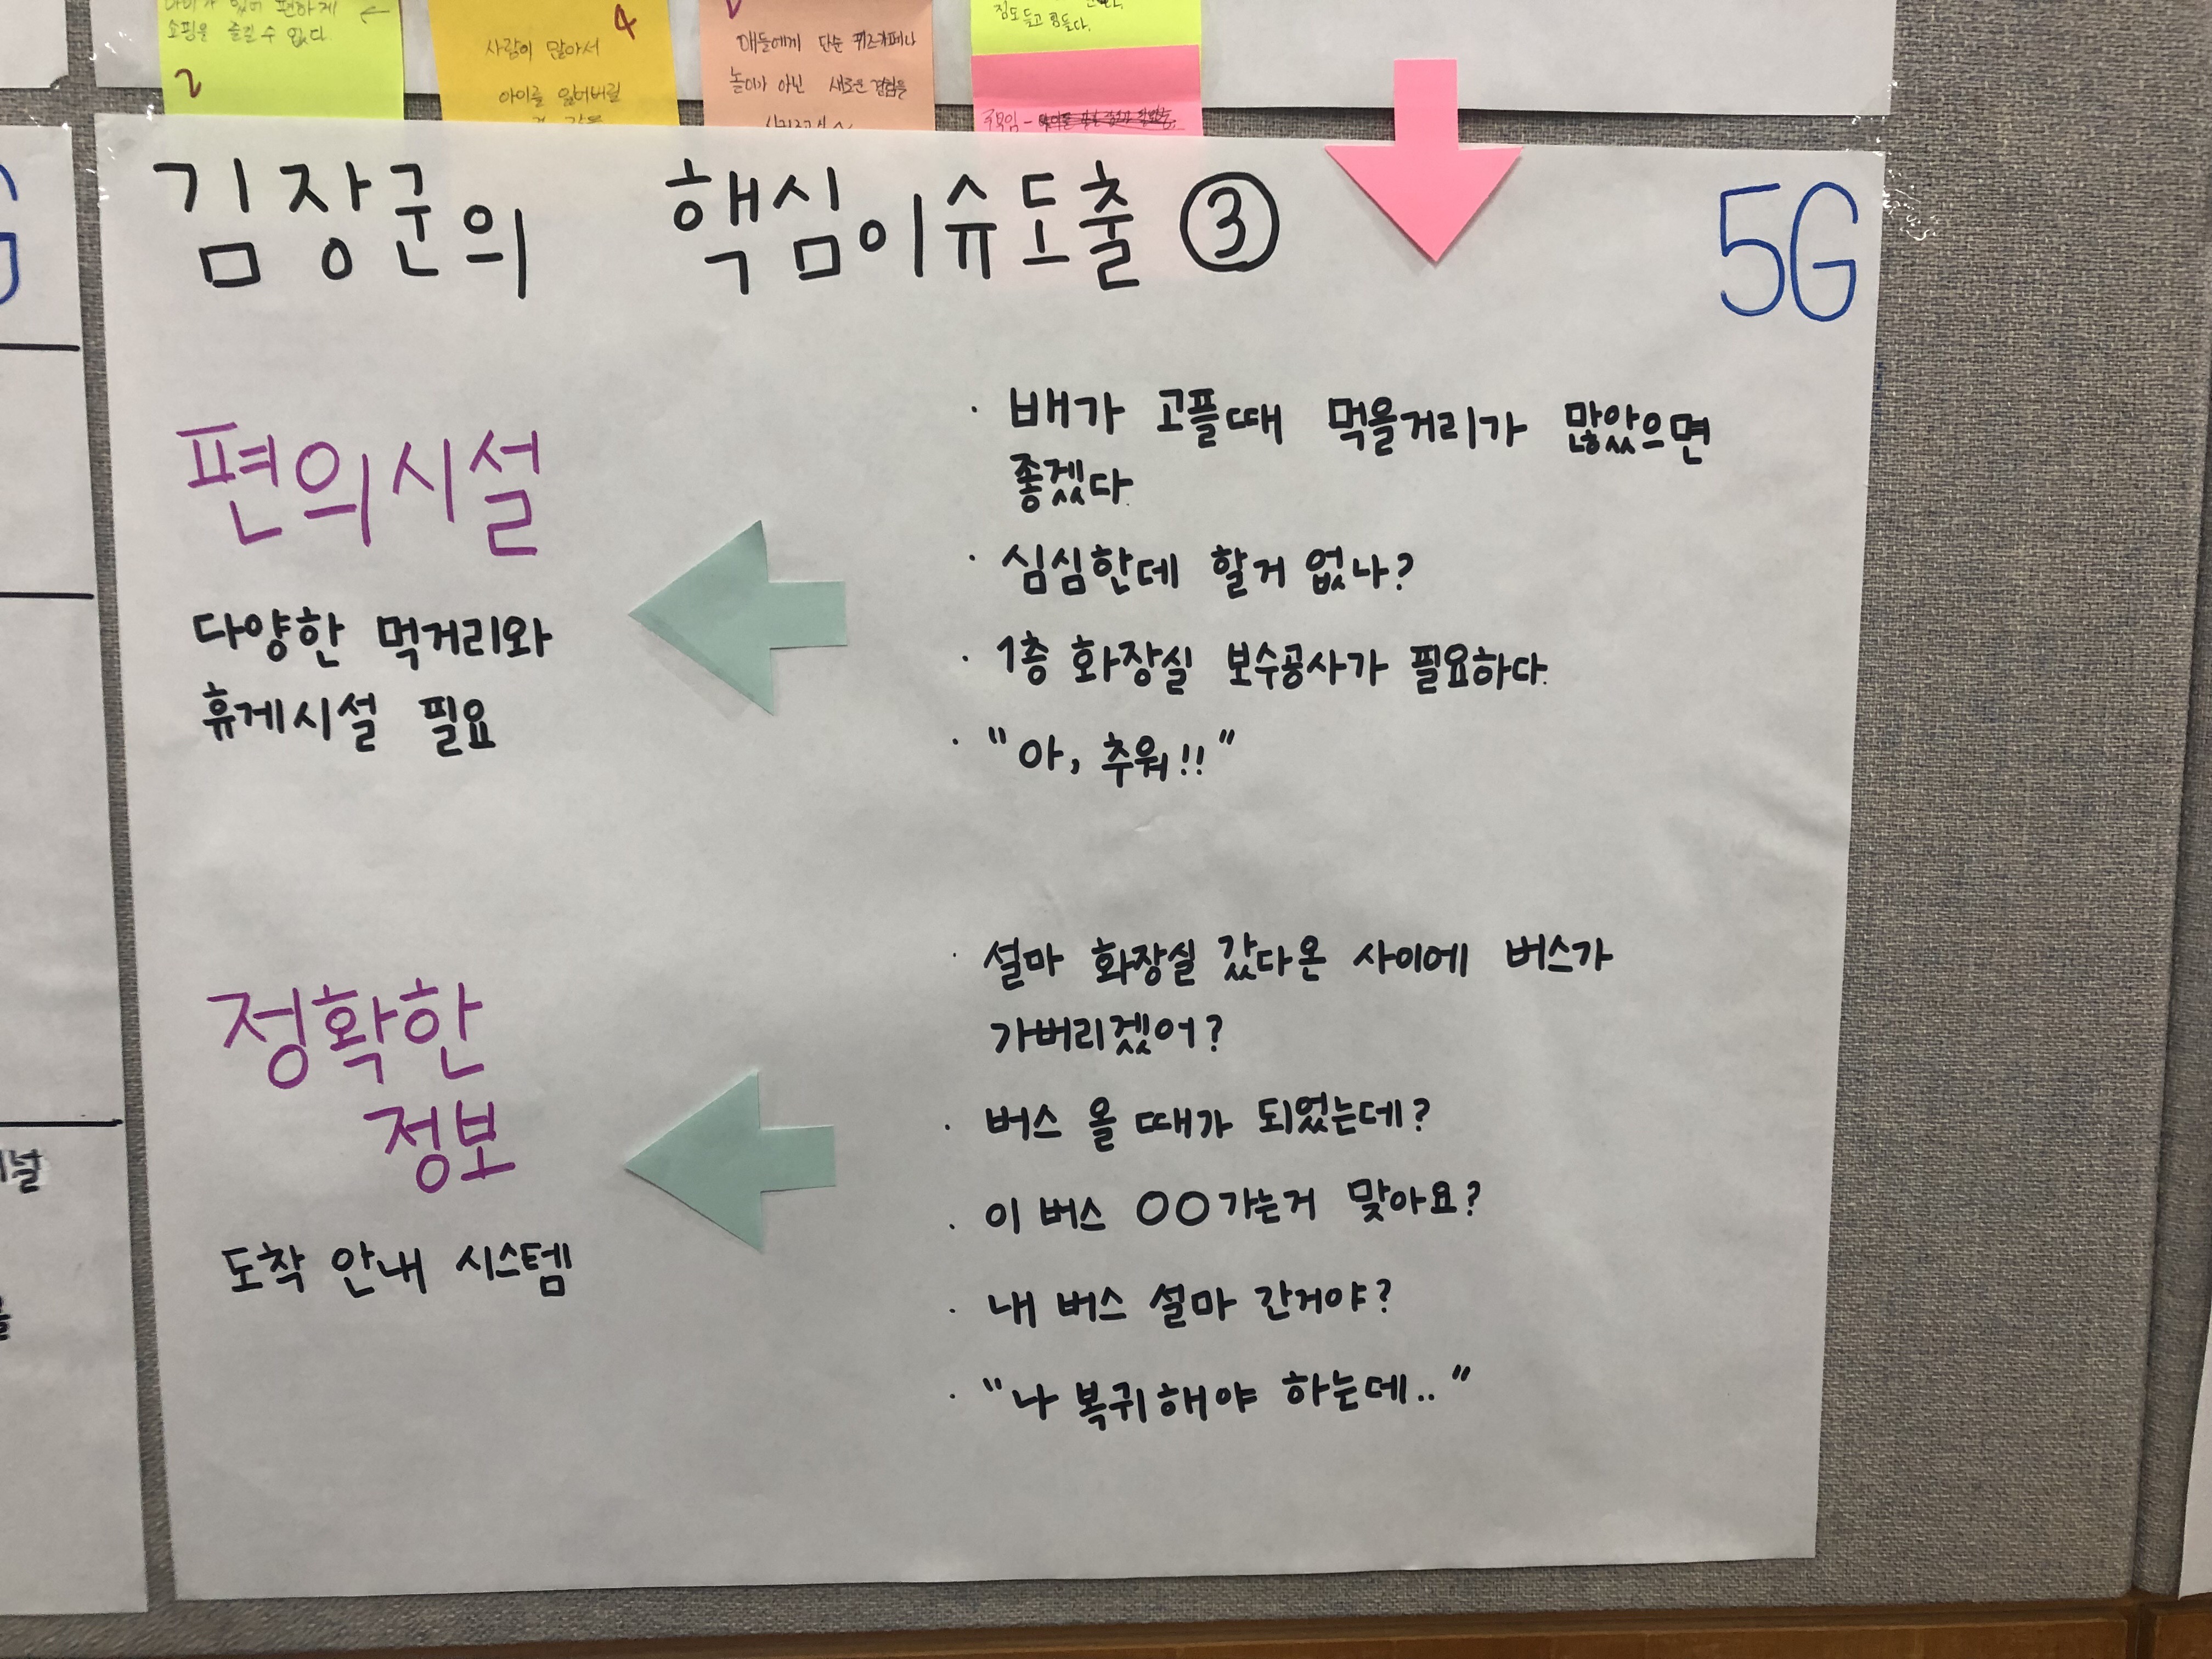 쇼핑을 즐길 수 없다.
2
4
사람이 많아서
아이를 잃어버릴
애들에게 단순 키즈카페나
놀이가 아닌 새로운 경험을
짐도 들고 힘들다.
김장군의 핵심이슈도출 ③
5G
편의시설
다양한 먹거리와
휴게시설 필요
· 배가 고플때 먹을거리가 많았으면
좋겠다.
· 심심한데 할거 없나?
· 1층 화장실 보수공사가 필요하다.
· "아, 추워!!"
정확한
정보
도착 안내 시스템
· 설마 화장실 갔다온 사이에 버스가
가버리겠어?
· 버스 올 때가 되었는데?
· 이 버스 OO가는거 맞아요?
· 내 버스 설마 간거야?
· "나 복귀해야 하는데.."
널